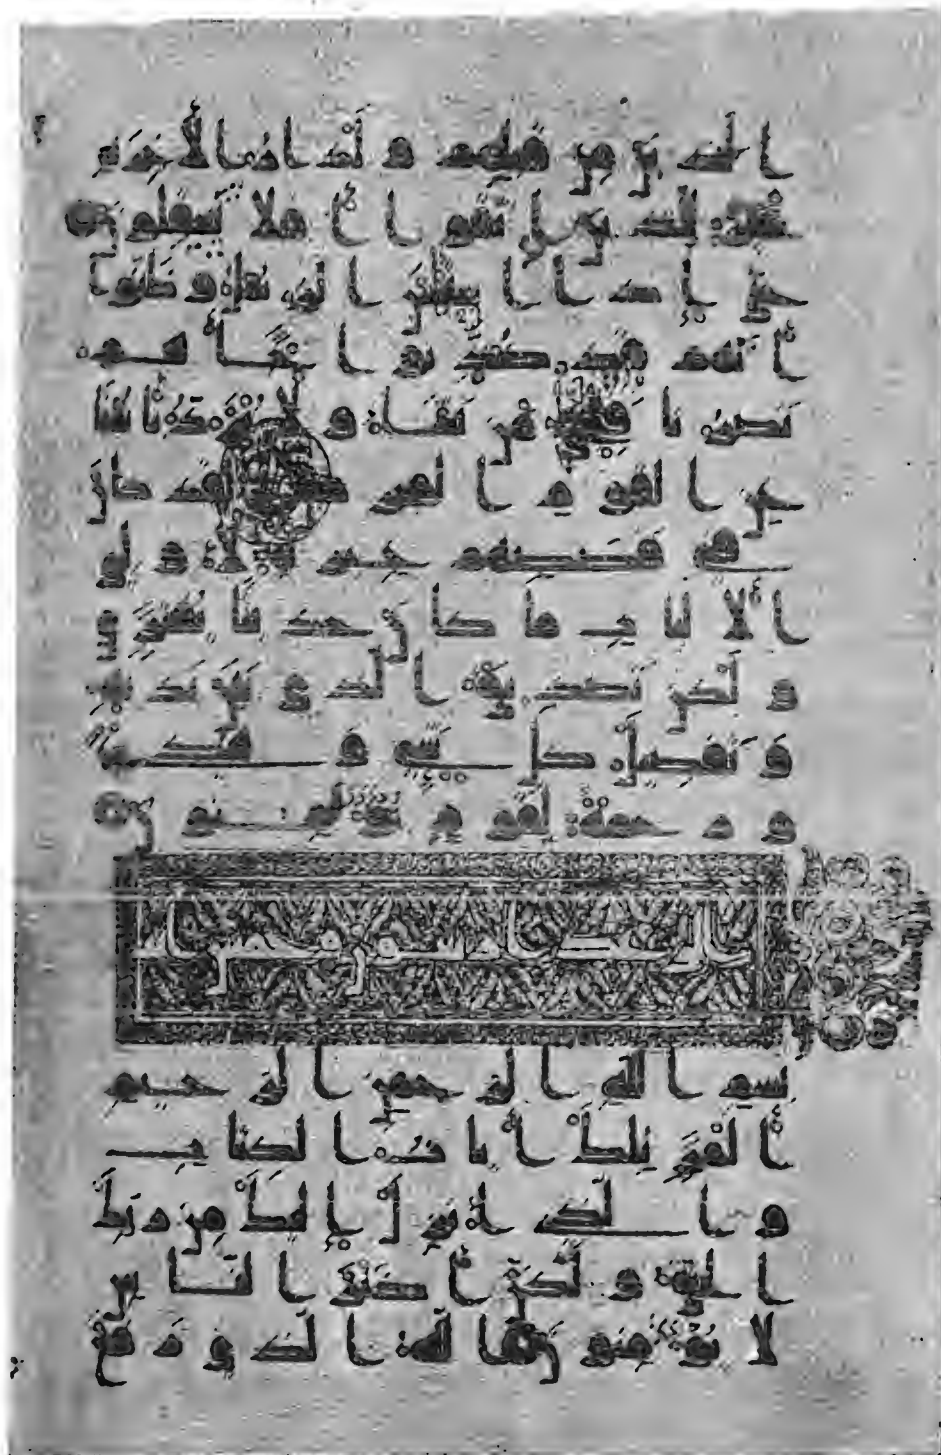 الذين من قبلهم ولدار الآخرة
خير للذين اتقوا أفلا تعقلون
حتى إذا استيئس الرسل وظنوا
أنهم قد كذبوا جاءهم
نصرنا فنجي من نشاء ولا يرد بأسنا
عن القوم المجرمين لقد كان
في قصصهم عبرة لأولي
الألباب ما كان حديثا يفترى
ولكن تصديق الذي بين يديه
وتفصيل كل شيء وهدى
ورحمة لقوم يؤمنون
بسم الله الرحمن الرحيم
المر تلك آيات الكتاب
والذي أنزل إليك من ربك
الحق ولكن أكثر الناس
لا يؤمنون الله الذي رفع